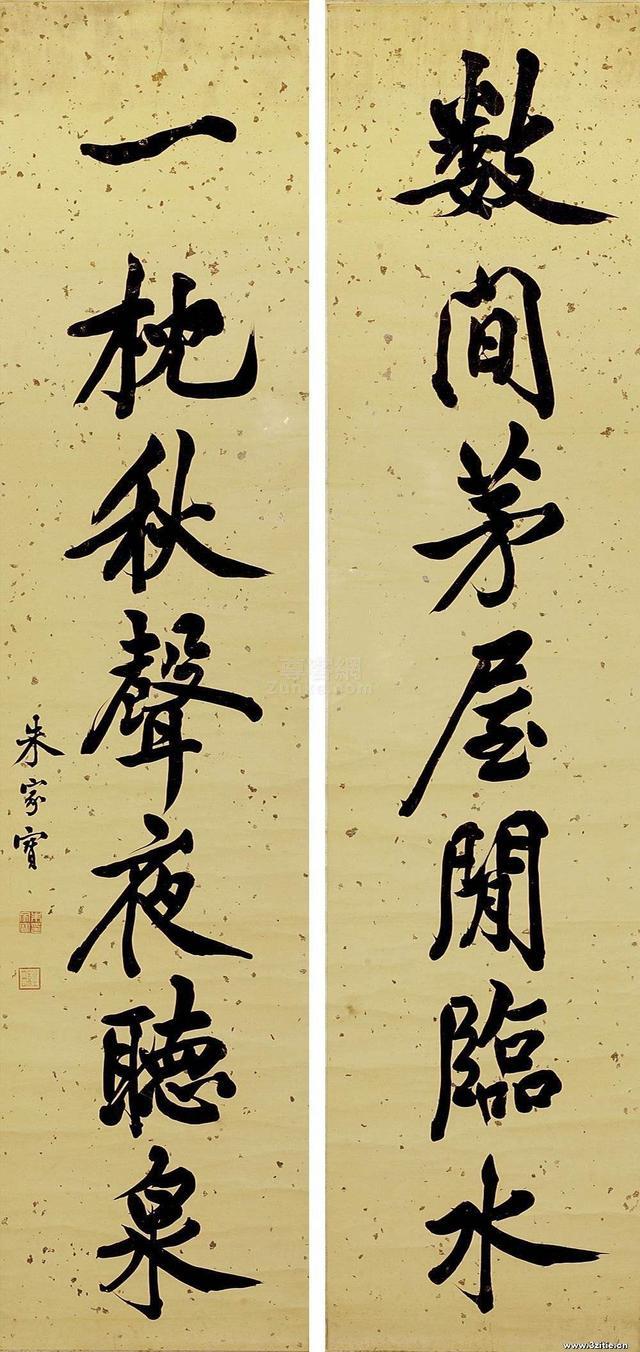 數間茅屋閒臨水
一枕秋聲夜聽泉
朱家寶
尊客網
Zunke.com
www.3zitie.cn